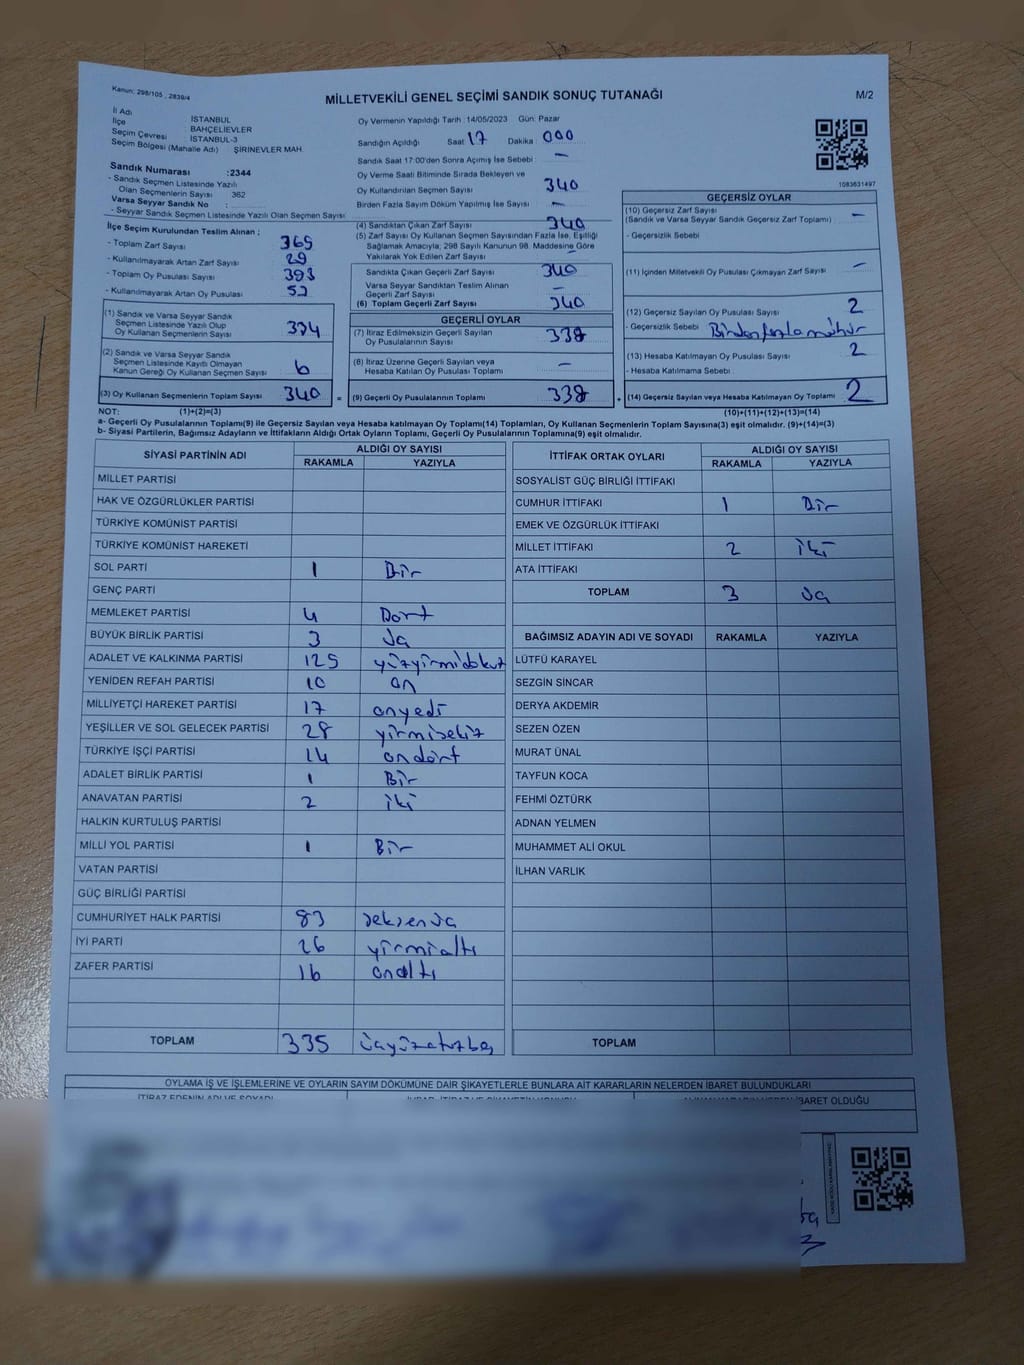 Kanun: 298/105 , 2839/4
MİLLETVEKİLİ GENEL SEÇİMİ SANDIK SONUÇ TUTANAĞI
M/2
İl Adı : İSTANBUL
İlçe : BAHÇELİEVLER
Seçim Çevresi : İSTANBUL-3
Seçim Bölgesi (Mahalle Adı) : ŞİRİNEVLER MAH.
Oy Vermenin Yapıldığı Tarih : 14/05/2023 Gün: Pazar
Sandığın Açıldığı Saat 17 Dakika : 000
Sandık Saat 17:00'den Sonra Açılmış İse Sebebi : —
Oy Verme Saati Bitiminde Sırada Bekleyen ve
Oy Kullandırılan Seçmen Sayısı : 340
Birden Fazla Sayım Döküm Yapılmış İse Sayısı : —
1083631497
Sandık Numarası :2344
- Sandık Seçmen Listesinde Yazılı
Olan Seçmenlerin Sayısı : 362
Varsa Seyyar Sandık No :
- Seyyar Sandık Seçmen Listesinde Yazılı Olan Seçmen Sayısı:
İlçe Seçim Kurulundan Teslim Alınan ;
- Toplam Zarf Sayısı : 369
- Kullanılmayarak Artan Zarf Sayısı : 29
- Toplam Oy Pusulası Sayısı : 393
- Kullanılmayarak Artan Oy Pusulası : 53
(1) Sandık ve Varsa Seyyar Sandık
Seçmen Listesinde Yazılı Olup
Oy Kullanan Seçmenlerin Sayısı : 334
(2) Sandık ve Varsa Seyyar Sandık
Seçmen Listesinde Kayıtlı Olmayan
Kanun Gereği Oy Kullanan Seçmen Sayısı : 6
(3) Oy Kullanan Seçmenlerin Toplam Sayısı : 340 =
(4) Sandıktan Çıkan Zarf Sayısı : 340
(5) Zarf Sayısı Oy Kullanan Seçmen Sayısından Fazla İse, Eşitliği
Sağlamak Amacıyla, 298 Sayılı Kanunun 98. Maddesine Göre
Yakılarak Yok Edilen Zarf Sayısı : —
Sandıkta Çıkan Geçerli Zarf Sayısı : 340
Varsa Seyyar Sandıktan Teslim Alınan
Geçerli Zarf Sayısı : —
(6) Toplam Geçerli Zarf Sayısı : 340
GEÇERLİ OYLAR
(7) İtiraz Edilmeksizin Geçerli Sayılan
Oy Pusulalarının Sayısı : 338
(8) İtiraz Üzerine Geçerli Sayılan veya
Hesaba Katılan Oy Pusulası Toplamı : —
(9) Geçerli Oy Pusulalarının Toplamı : 338 +
GEÇERSİZ OYLAR
(10) Geçersiz Zarf Sayısı
(Sandık ve Varsa Seyyar Sandık Geçersiz Zarf Toplamı) : —
- Geçersizlik Sebebi
(11) İçinden Milletvekili Oy Pusulası Çıkmayan Zarf Sayısı : —
(12) Geçersiz Sayılan Oy Pusulası Sayısı : 2
- Geçersizlik Sebebi : Birden fazla mühür
(13) Hesaba Katılmayan Oy Pusulası Sayısı : 2
- Hesaba Katılmama Sebebi :
(14) Geçersiz Sayılan veya Hesaba Katılmayan Oy Toplamı : 2
NOT: (1)+(2)=(3) (10)+(11)+(12)+(13)=(14)
a- Geçerli Oy Pusulalarının Toplamı(9) ile Geçersiz Sayılan veya Hesaba katılmayan Oy Toplam(14) Toplamları, Oy Kullanan Seçmenlerin Toplam Sayısına(3) eşit olmalıdır. (9)+(14)=(3)
b- Siyasi Partilerin, Bağımsız Adayların ve İttifakların Aldığı Ortak Oyların Toplamı, Geçerli Oy Pusulalarının Toplamına(9) eşit olmalıdır.
SİYASİ PARTİNİN ADI ALDIĞI OY SAYISI
RAKAMLA YAZIYLA
MİLLET PARTİSİ
HAK VE ÖZGÜRLÜKLER PARTİSİ
TÜRKİYE KOMÜNİST PARTİSİ
TÜRKİYE KOMÜNİST HAREKETİ
SOL PARTİ 1 Bir
GENÇ PARTİ
MEMLEKET PARTİSİ 4 Dört
BÜYÜK BİRLİK PARTİSİ 3 Üç
ADALET VE KALKINMA PARTİSİ 129 yüzyirmidokuz
YENİDEN REFAH PARTİSİ 10 on
MİLLİYETÇİ HAREKET PARTİSİ 17 onyedi
YEŞİLLER VE SOL GELECEK PARTİSİ 28 yirmisekiz
TÜRKİYE İŞÇİ PARTİSİ 14 ondört
ADALET BİRLİK PARTİSİ 1 Bir
ANAVATAN PARTİSİ 2 iki
HALKIN KURTULUŞ PARTİSİ
MİLLİ YOL PARTİSİ 1 Bir
VATAN PARTİSİ
GÜÇ BİRLİĞİ PARTİSİ
CUMHURİYET HALK PARTİSİ 83 seksenüç
İYİ PARTİ 26 yirmialtı
ZAFER PARTİSİ 16 onaltı
TOPLAM 335 üçyüzotuzbeş
İTTİFAK ORTAK OYLARI ALDIĞI OY SAYISI
RAKAMLA YAZIYLA
SOSYALİST GÜÇ BİRLİĞİ İTTİFAKI
CUMHUR İTTİFAKI 1 Bir
EMEK VE ÖZGÜRLÜK İTTİFAKI
MİLLET İTTİFAKI 2 iki
ATA İTTİFAKI
TOPLAM 3 üç
BAĞIMSIZ ADAYIN ADI VE SOYADI RAKAMLA YAZIYLA
LÜTFÜ KARAYEL
SEZGİN SİNCAR
DERYA AKDEMİR
SEZEN ÖZEN
MURAT ÜNAL
TAYFUN KOCA
FEHMİ ÖZTÜRK
ADNAN YELMEN
MUHAMMET ALİ OKUL
İLHAN VARLIK
TOPLAM
OYLAMA İŞ VE İŞLEMLERİNE VE OYLARIN SAYIM DÖKÜMÜNE DAİR ŞİKAYETLERLE BUNLARA AİT KARARLARIN NELERDEN İBARET BULUNDUKLARI
İTİRAZ EDENİN ADI VE SOYADI
İBARET OLDUĞU